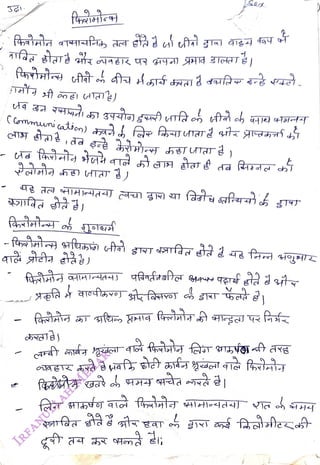 फिरोमोन्स
फिरोमोन रासायनिक तत्व होते हैं जो जीवों द्वारा बाह्य रूप में
स्रावित होता है और व्यवहार पर अपना प्रभाव डालता है।
फिरोमोन्स जीवों के बीच में कार्य करता है इसलिए इन्हें एक्टो-
हार्मोन भी कहा जाता है।
- जब उन रसायनों का उपयोग दूसरी जाति के जीवों के साथ
(Communication) करने के लिए किया जाता है और प्राप्तकर्ता को
लाभ होता है, तब इन्हें केरोमोन्स कहा जाता है।
- जब फिरोमोन भेजने वाले को लाभ होता है तब सिग्नल को
ऐलोमोन कहा जाता है।
- यह तत्व सामान्यतया त्वचा द्वारा या विशेष ग्रन्थियों के द्वारा
स्रावित होते हैं।
फिरोमोन्स के गुणधर्म
- फिरोमोन्स अधिकांश जीवों द्वारा स्रावित होते हैं यह निम्न अणुभार
वाले प्रोटीन होते हैं।
- फिरोमोन सामान्यतया परिवर्तनशील पदार्थ होते हैं और
प्रकृति में वाष्पीकरण और विसरण के द्वारा फैलते हैं।
- फिरोमोन का अधिक प्रभाव फिरोमोन की सान्द्रता पर निर्भर
करता है।
- लम्बी कार्बन श्रृंखला वाले फिरोमोन लिंग आकर्षण की तरह
व्यवहार करते हैं जबकि छोटी कार्बन श्रृंखला वाले फिरोमोन
खतरे के समय सचेत करते हैं।
- लिंग आकर्षण वाले फिरोमोन सामान्यतया रात के समय
स्रावित होते हैं और हवा के द्वारा कई किलोमीटर की
दूरी तय कर सकते हैं।